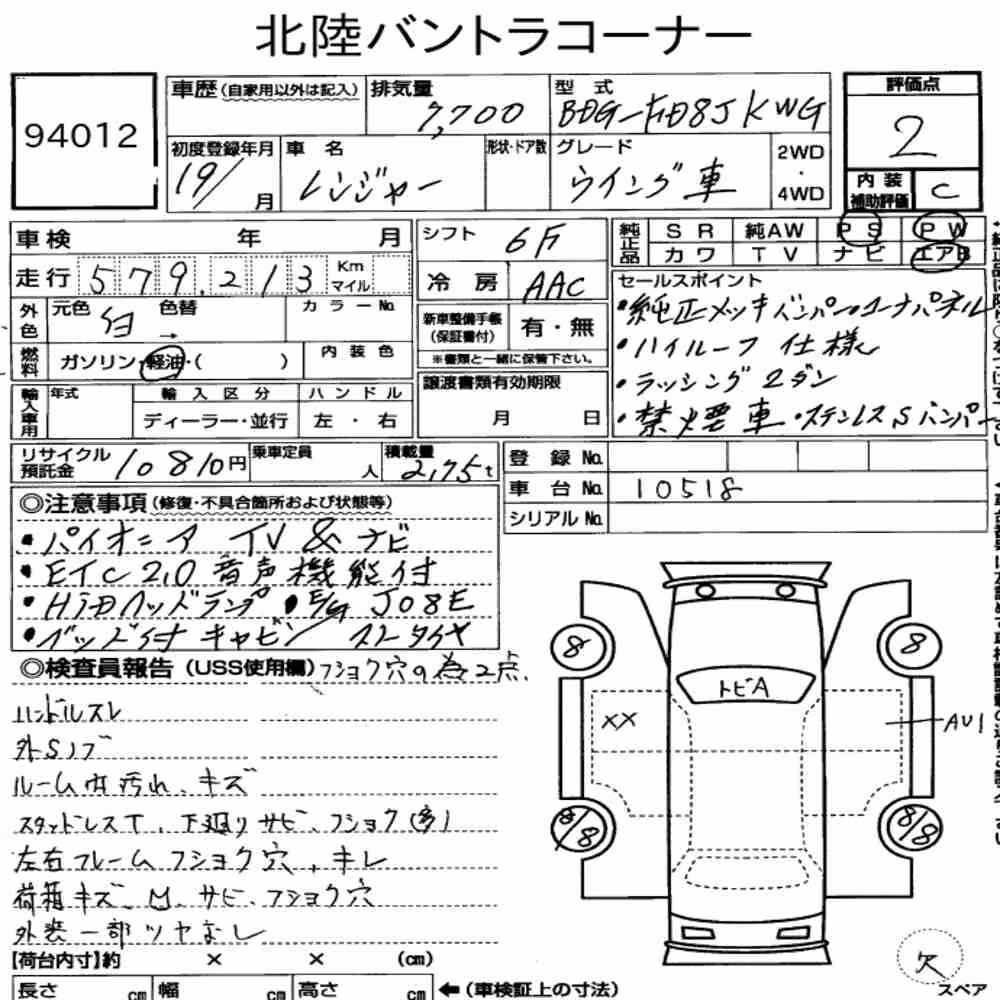 北陸バントラコーナー
94012
車歴 (自家用以外は記入)
排気量 7,700
型式 BDG-FD8JKWG
評価点 2
内装補助評価 C
初度登録年月 19/ 月
車名 レンジャー
形状・ドア数
グレード ウイング車
2WD・4WD
車検 年 月
走行 579,213 Km マイル
シフト 6F
冷房 AAC
純正品 SR 純AW PS PW
カワ TV ナビ エアB
外色 元色 白 色替 →
カラーNo
燃料 ガソリン・軽油・( )
内装色
新車整備手帳(保証書付) 有・無
※書類と一緒に保管下さい。
セールスポイント
・純正メッキバンパーコーナパネル
・ハイルーフ仕様
・ラッシング2ダン
・禁煙要車・ステンレスSバンパー
輸入車用 年式 輸入区分 ハンドル
ディーラー・並行 左・右
譲渡書類有効期限
月 日
リサイクル預託金 10810円
乗車定員 人
積載量 2,75t
登録No.
車台No. 10518
シリアルNo.
◎注意事項 (修復・不具合箇所および状態等)
・パイオニア TV & ナビ
・ETC2.0 音声機能付
・HiDヘッドランプ ・E/G J08E
・ベッド付キャビン ストタイヤ
◎検査員報告 (USS使用欄) フショク穴の為2点.
ハンドルスレ
外Sノブ
ルーム内汚れ、キズ
スタッドレスT、下廻りサビ、フショク(多)
左右フレームフショク穴、キレ
荷箱キズ、凹、サビ、フショク穴
外装一部ツヤなし
【荷台内寸】約 × × (cm)
長さ cm 幅 cm 高さ cm ←(車検証上の寸法)
トビA
XX
AU1
8
8
8/8
8/8
欠
スペア